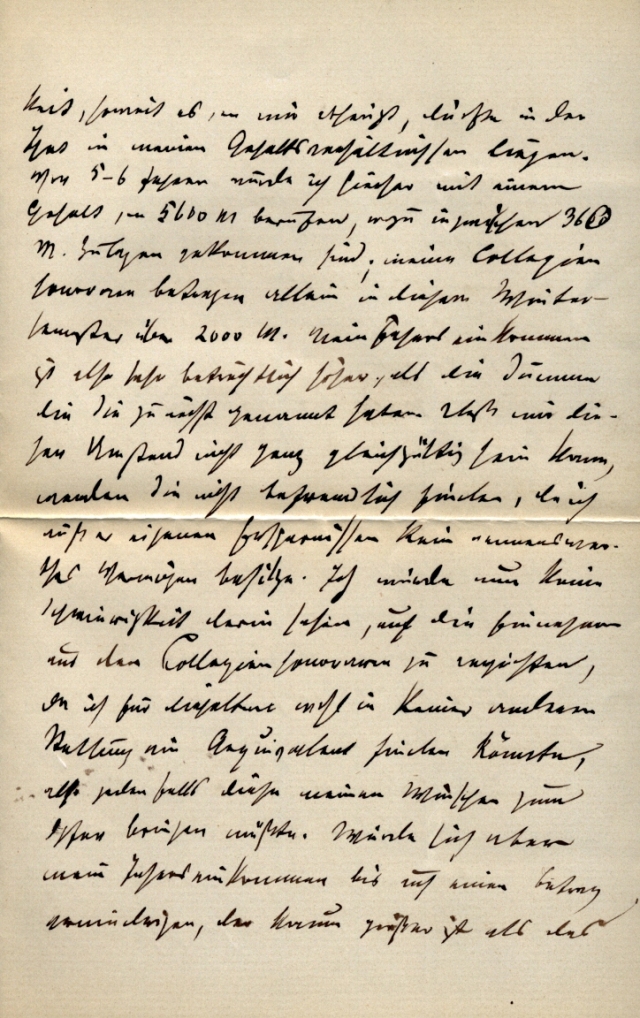 keit, soweit es von mir abhängt, dürfte in der
That in meinen Gehaltsverhältnissen liegen.
Vor 5-6 Jahren wurde ich hierher mit einem
Gehalt von 5600 M berufen, wozu inzwischen 3660
M. Zulagen gekommen sind; meine Collegien
honorare betragen allein in diesem Winter-
semester über 2000 M. Mein Jahreseinkommen
ist also sehr beträchtlich höher, als die Summe
die Sie zunächst genannt haben. Daß mir die-
ser Umstand nicht ganz gleichgültig sein kann,
werden Sie nicht befremdlich finden, da ich
außer eigenen Ersparnissen kein nennenswer-
thes Vermögen besitze. Ich würde nun keine
Schwierigkeit darin sehen, auf die Einnahmen
aus den Collegienhonoraren zu verzichten,
da ich für dieselben wohl in keiner anderen
Stellung ein Aequivalent finden könnte,
also jedenfalls diese meinen Wünschen zum
Opfer bringen müßte. Würde sich aber
mein Jahreseinkommen bis auf einen Betrag
erniedrigen, der kaum größer ist als das